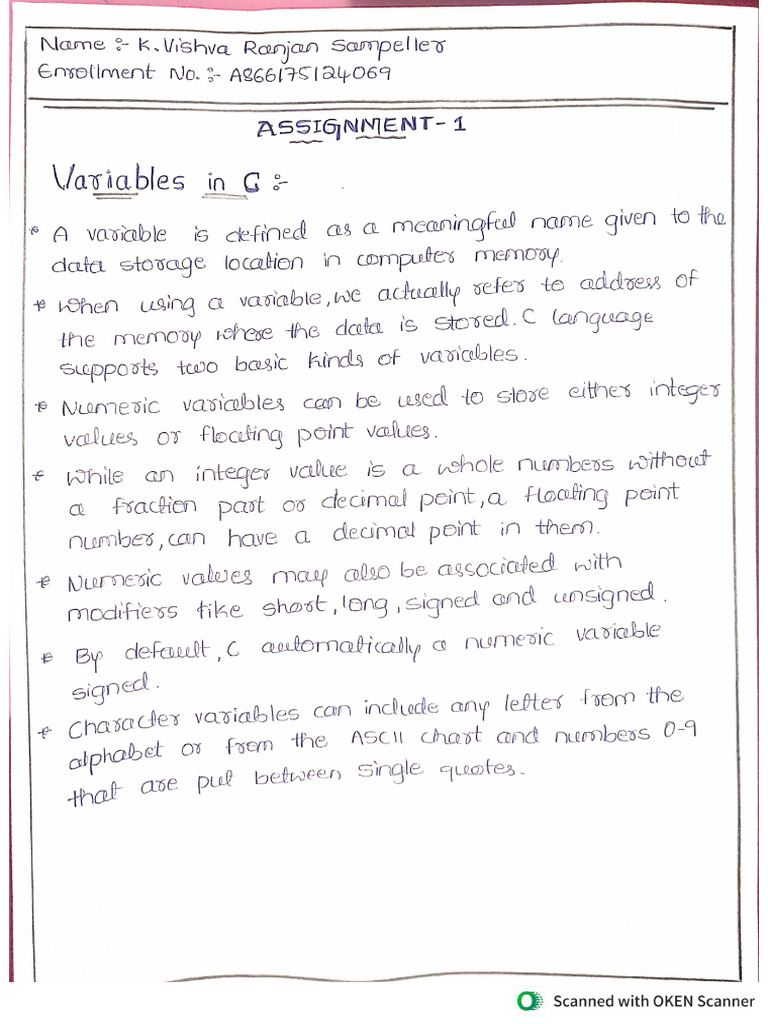 Name :- K.Vishva Ranjan Sampeller
Enrollment No. :- A866175124069
ASSIGNMENT-1
Variables in C :-
* A variable is defined as a meaningful name given to the
data storage location in computer memory.
* When using a variable, we actually refer to address of
the memory where the data is stored. C language
supports two basic kinds of variables.
* Numeric variables can be used to store either integer
values or floating point values.
* While an integer value is a whole numbers without
a fraction part or decimal point, a floating point
number, can have a decimal point in them.
* Numeric values may also be associated with
modifiers like short, long, signed and unsigned.
* By default, C automatically a numeric variable
signed.
* Character variables can include any letter from the
alphabet or from the ASCII chart and numbers 0-9
that are put between single quotes.
Scanned with OKEN Scanner